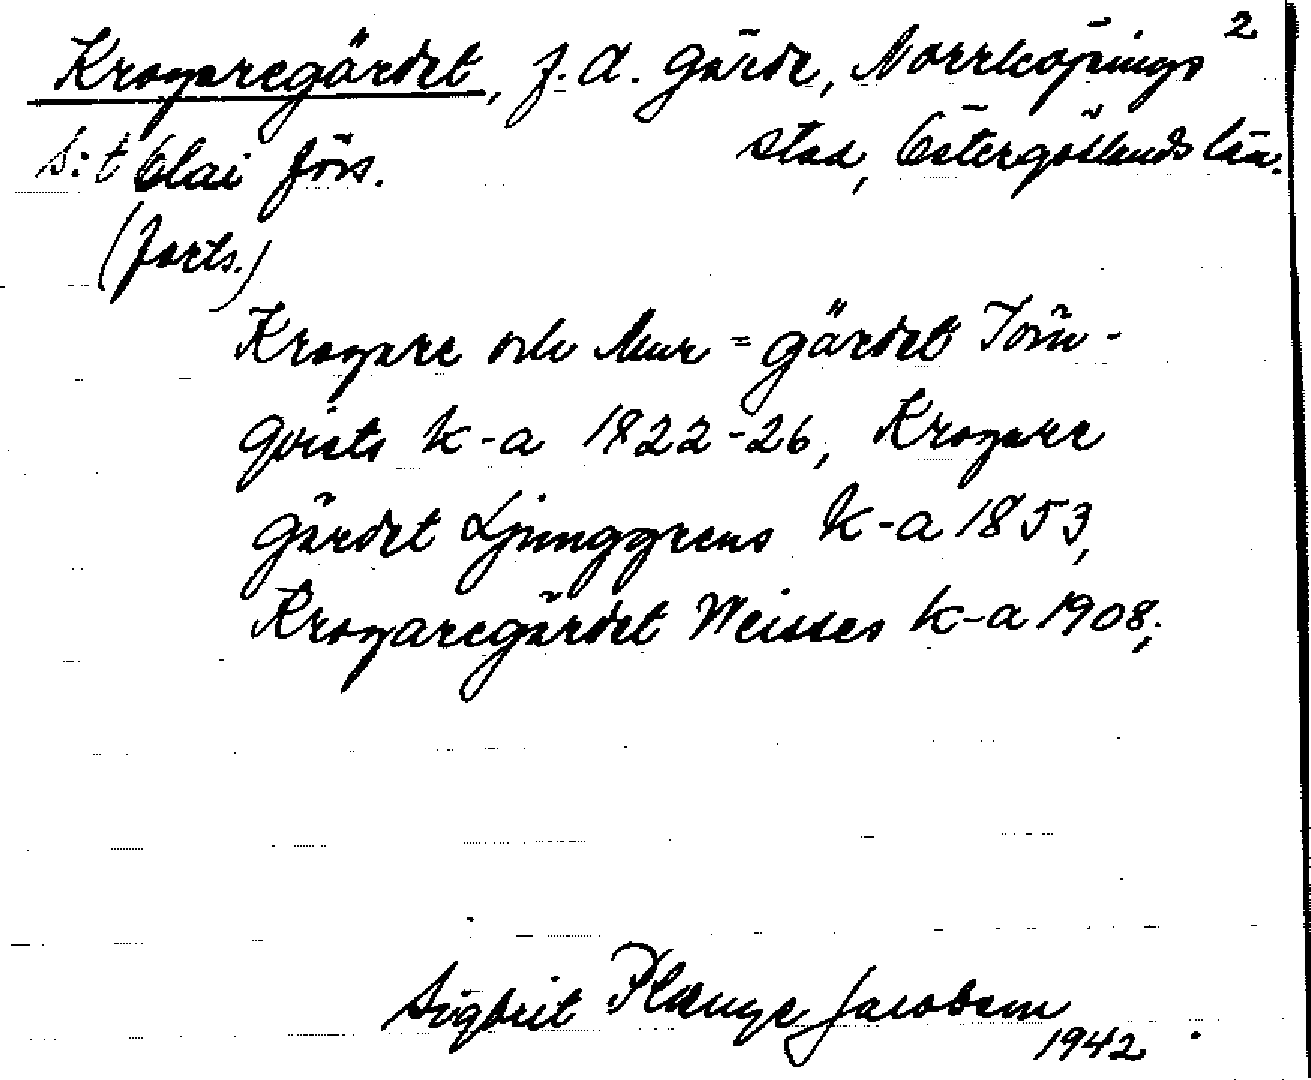 2
Krogaregärdet, f. d. gärde, Norrköpings
S:t Olai förs. stad, Östergötlands län.
(forts.)
Krogare och Mur=gärdet Törn-
qvists k-a 1822-26, Krogare
gärdet Ljunggrens k-a 1853,
Krogaregärdet Weisses k-a 1908;
Sigbrit Plænge Jacobson
1942